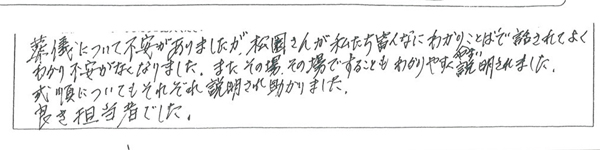 葬儀について不安がありましたが、松園さんが私たち皆んなにわかりことばで話されてよく
わかり不安がなくなりました。またその場、その場ですることもわかりやすく説明されました。
式順についてもそれぞれ説明され助かりました。
良き担当者でした。